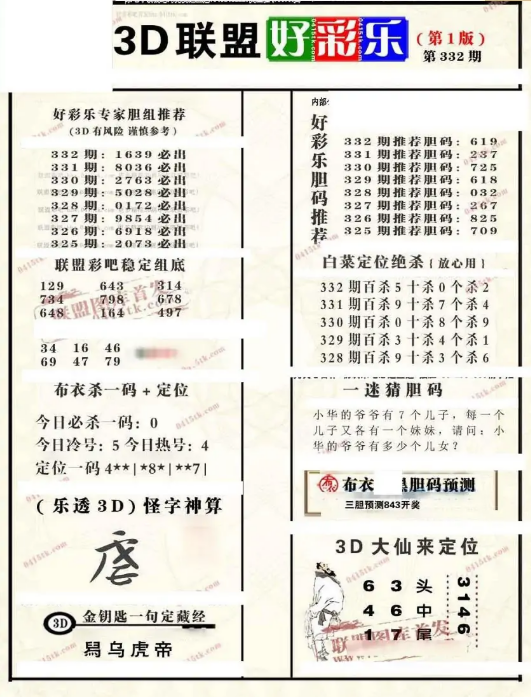 3D联盟好彩乐
(第1版)
第332期
好彩乐专家胆组推荐
(3D有风险 谨慎参考)
332期:1639必出
331期:8036必出
330期:2763必出
329期:5028必出
328期:0172必出
327期:9854必出
326期:6918必出
325期:2073必出
联盟彩吧稳定组底
129 643 314
734 798 678
648 164 497
34 16 46
69 47 79
布衣杀一码+定位
今日必杀一码:0
今日冷号:5 今日热号:4
定位一码 4**|*8*|**7|
(乐透3D)怪字神算
3D 金钥匙一句定藏经
乌虎帝
内部
好彩乐胆码推荐
332期推荐胆码:619
331期推荐胆码:237
330期推荐胆码:725
329期推荐胆码:618
328期推荐胆码:032
327期推荐胆码:267
326期推荐胆码:825
325期推荐胆码:709
白菜定位绝杀(放心用)
332期百杀5十杀0个杀2
331期百杀9十杀7个杀4
330期百杀0十杀8个杀9
329期百杀3十杀4个杀1
328期百杀9十杀3个杀6
一迷猜胆码
小华的爷爷有7个儿子,每一个
儿子又各有一个妹妹,请问:小
华的爷爷有多少个儿女?
布衣
胆码预测
三胆预测843开奖
3D大仙来定位
6 3 头
4 6 中
1 7 尾
3146
0415tk.com
联盟图库首发